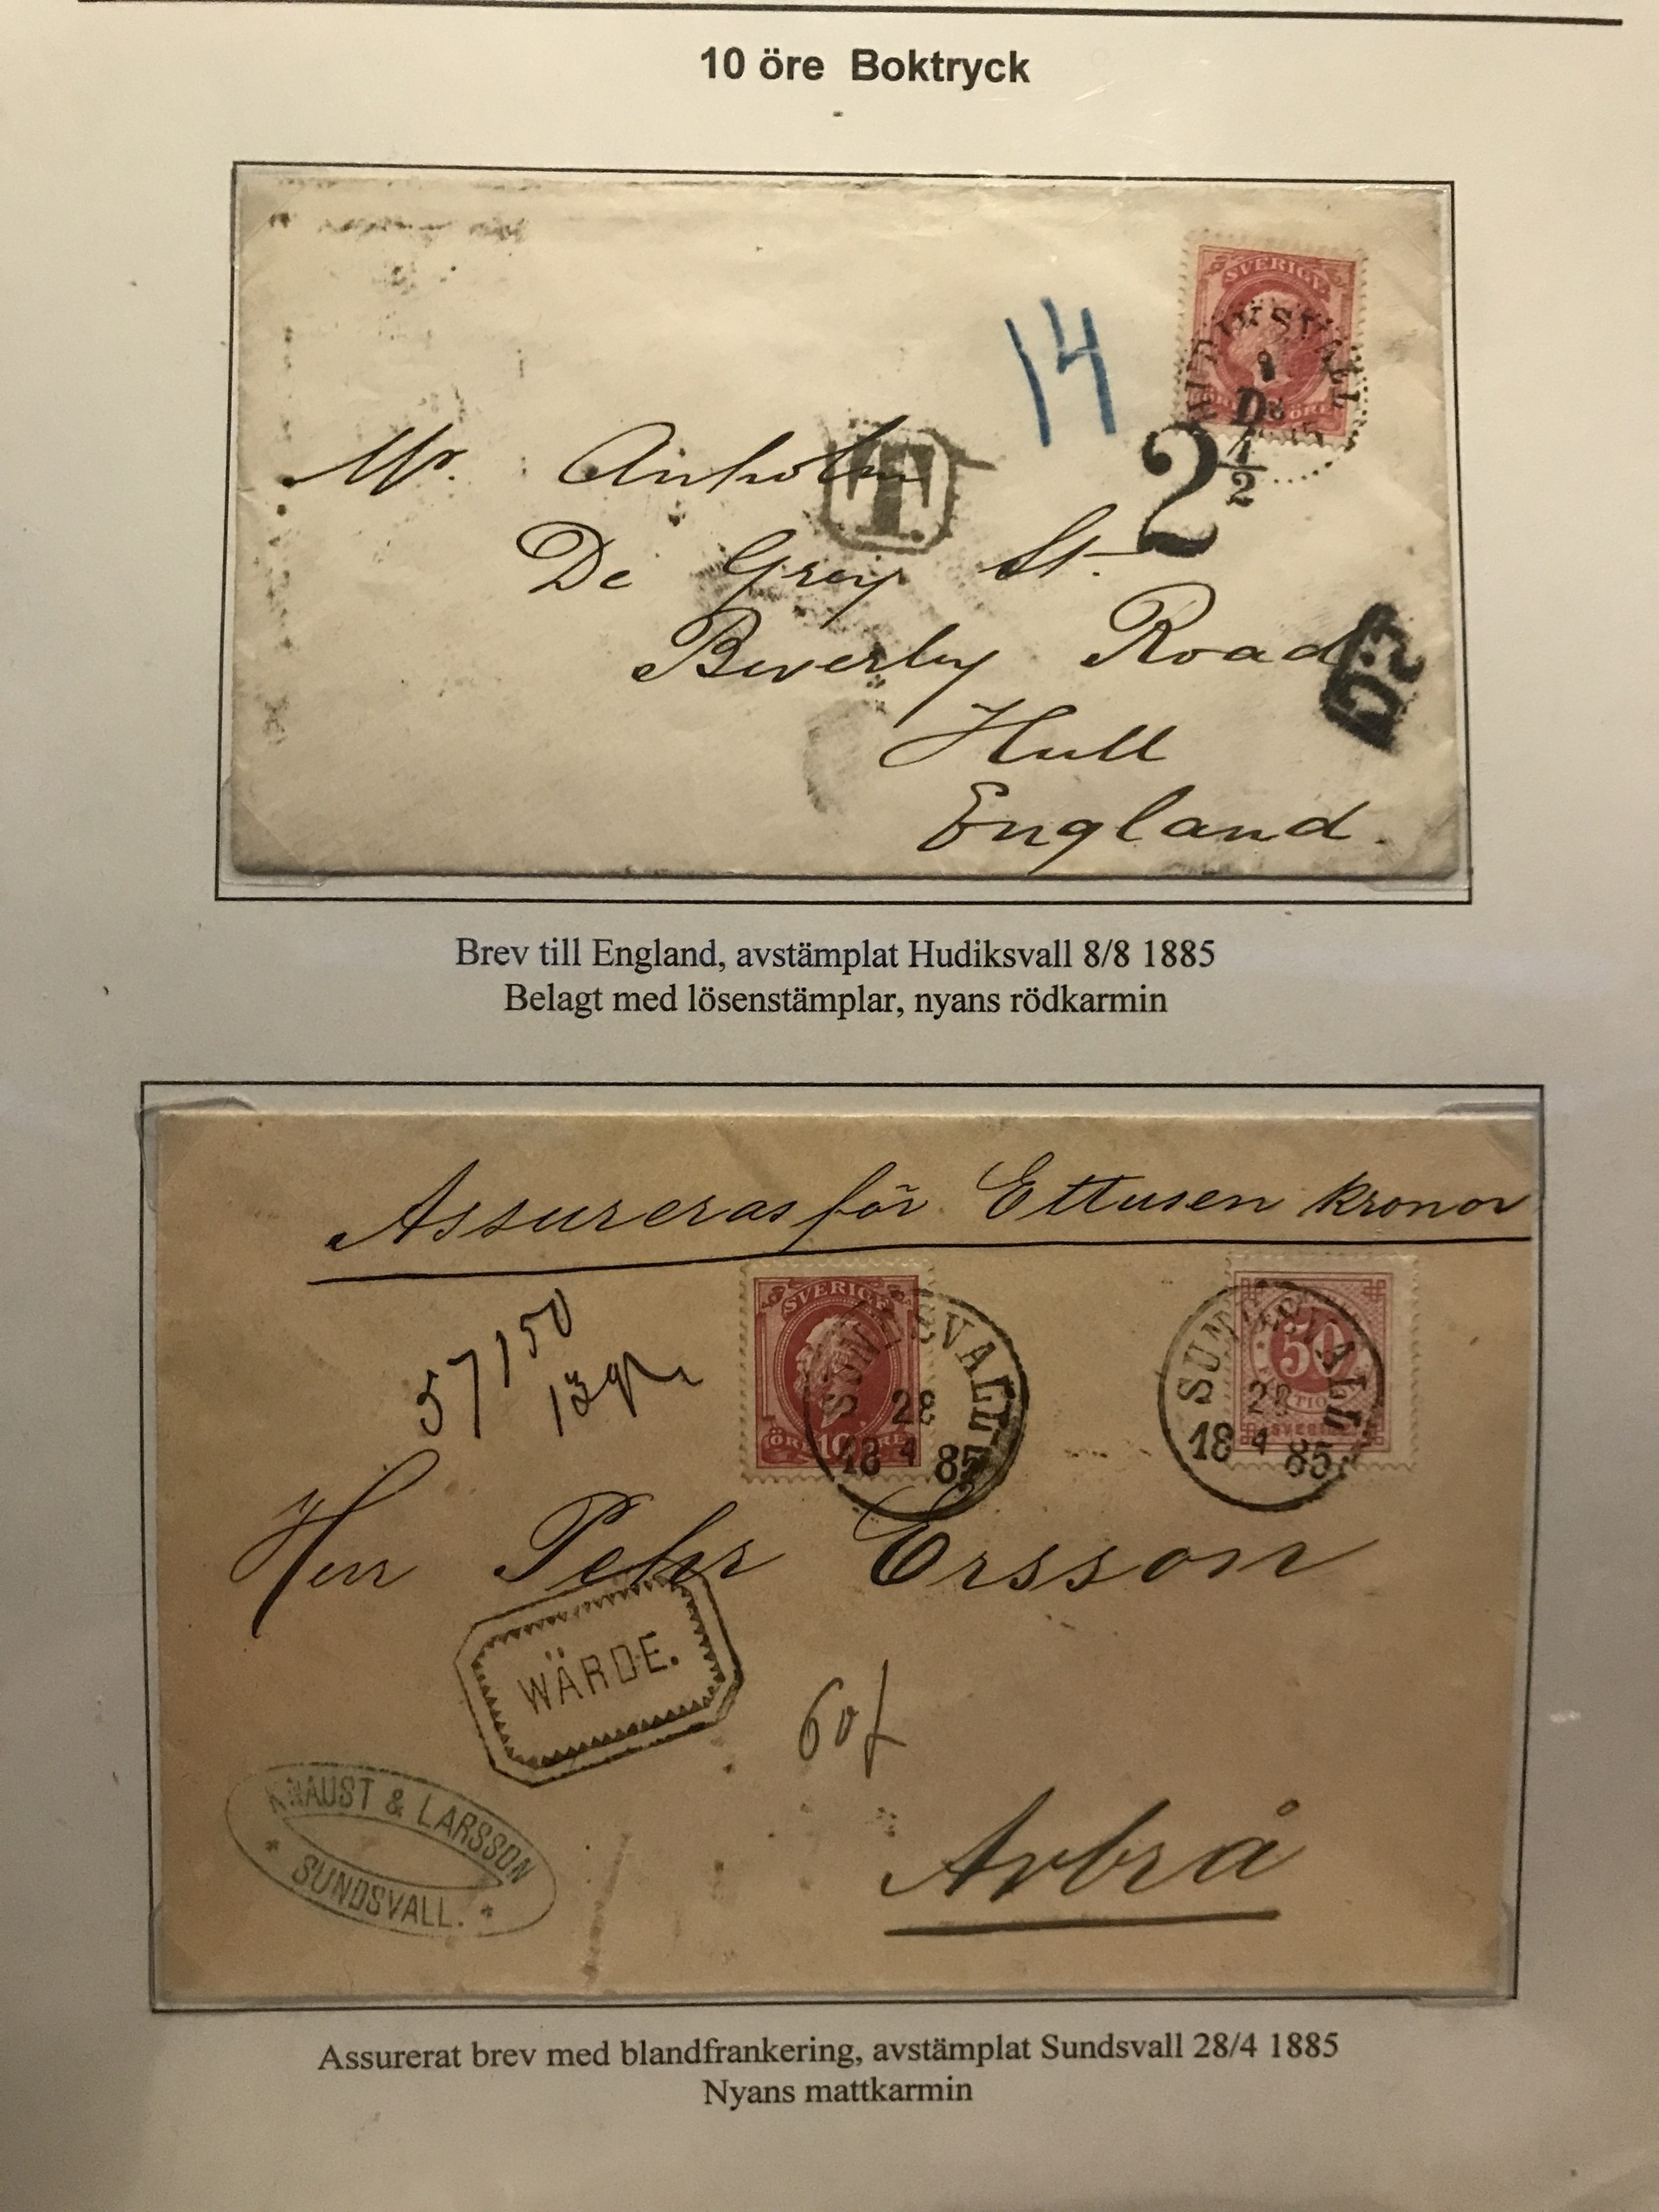 10 öre Boktryck
SVERIGE
14
T
2 D
1/2
Mr. Anholm
De Grey St.
Beverley Road
Hull
England.
Brev till England, avstämplat Hudiksvall 8/8 1885
Belagt med lösenstämplar, nyans rödkarmin
Assureras för Ettusen Kronor
57150
13 gr
SVERIGE
ÖRE 10 ÖRE
SUNDSVALL
28
18 4 85
50
SVERIGE
SUNDSVALL
28
18 4 85
Herr Pehr Ersson
WÄRDE.
60 f
KNAUST & LARSSON
* SUNDSVALL. *
Arbrå
Assurerat brev med blandfrankering, avstämplat Sundsvall 28/4 1885
Nyans mattkarmin